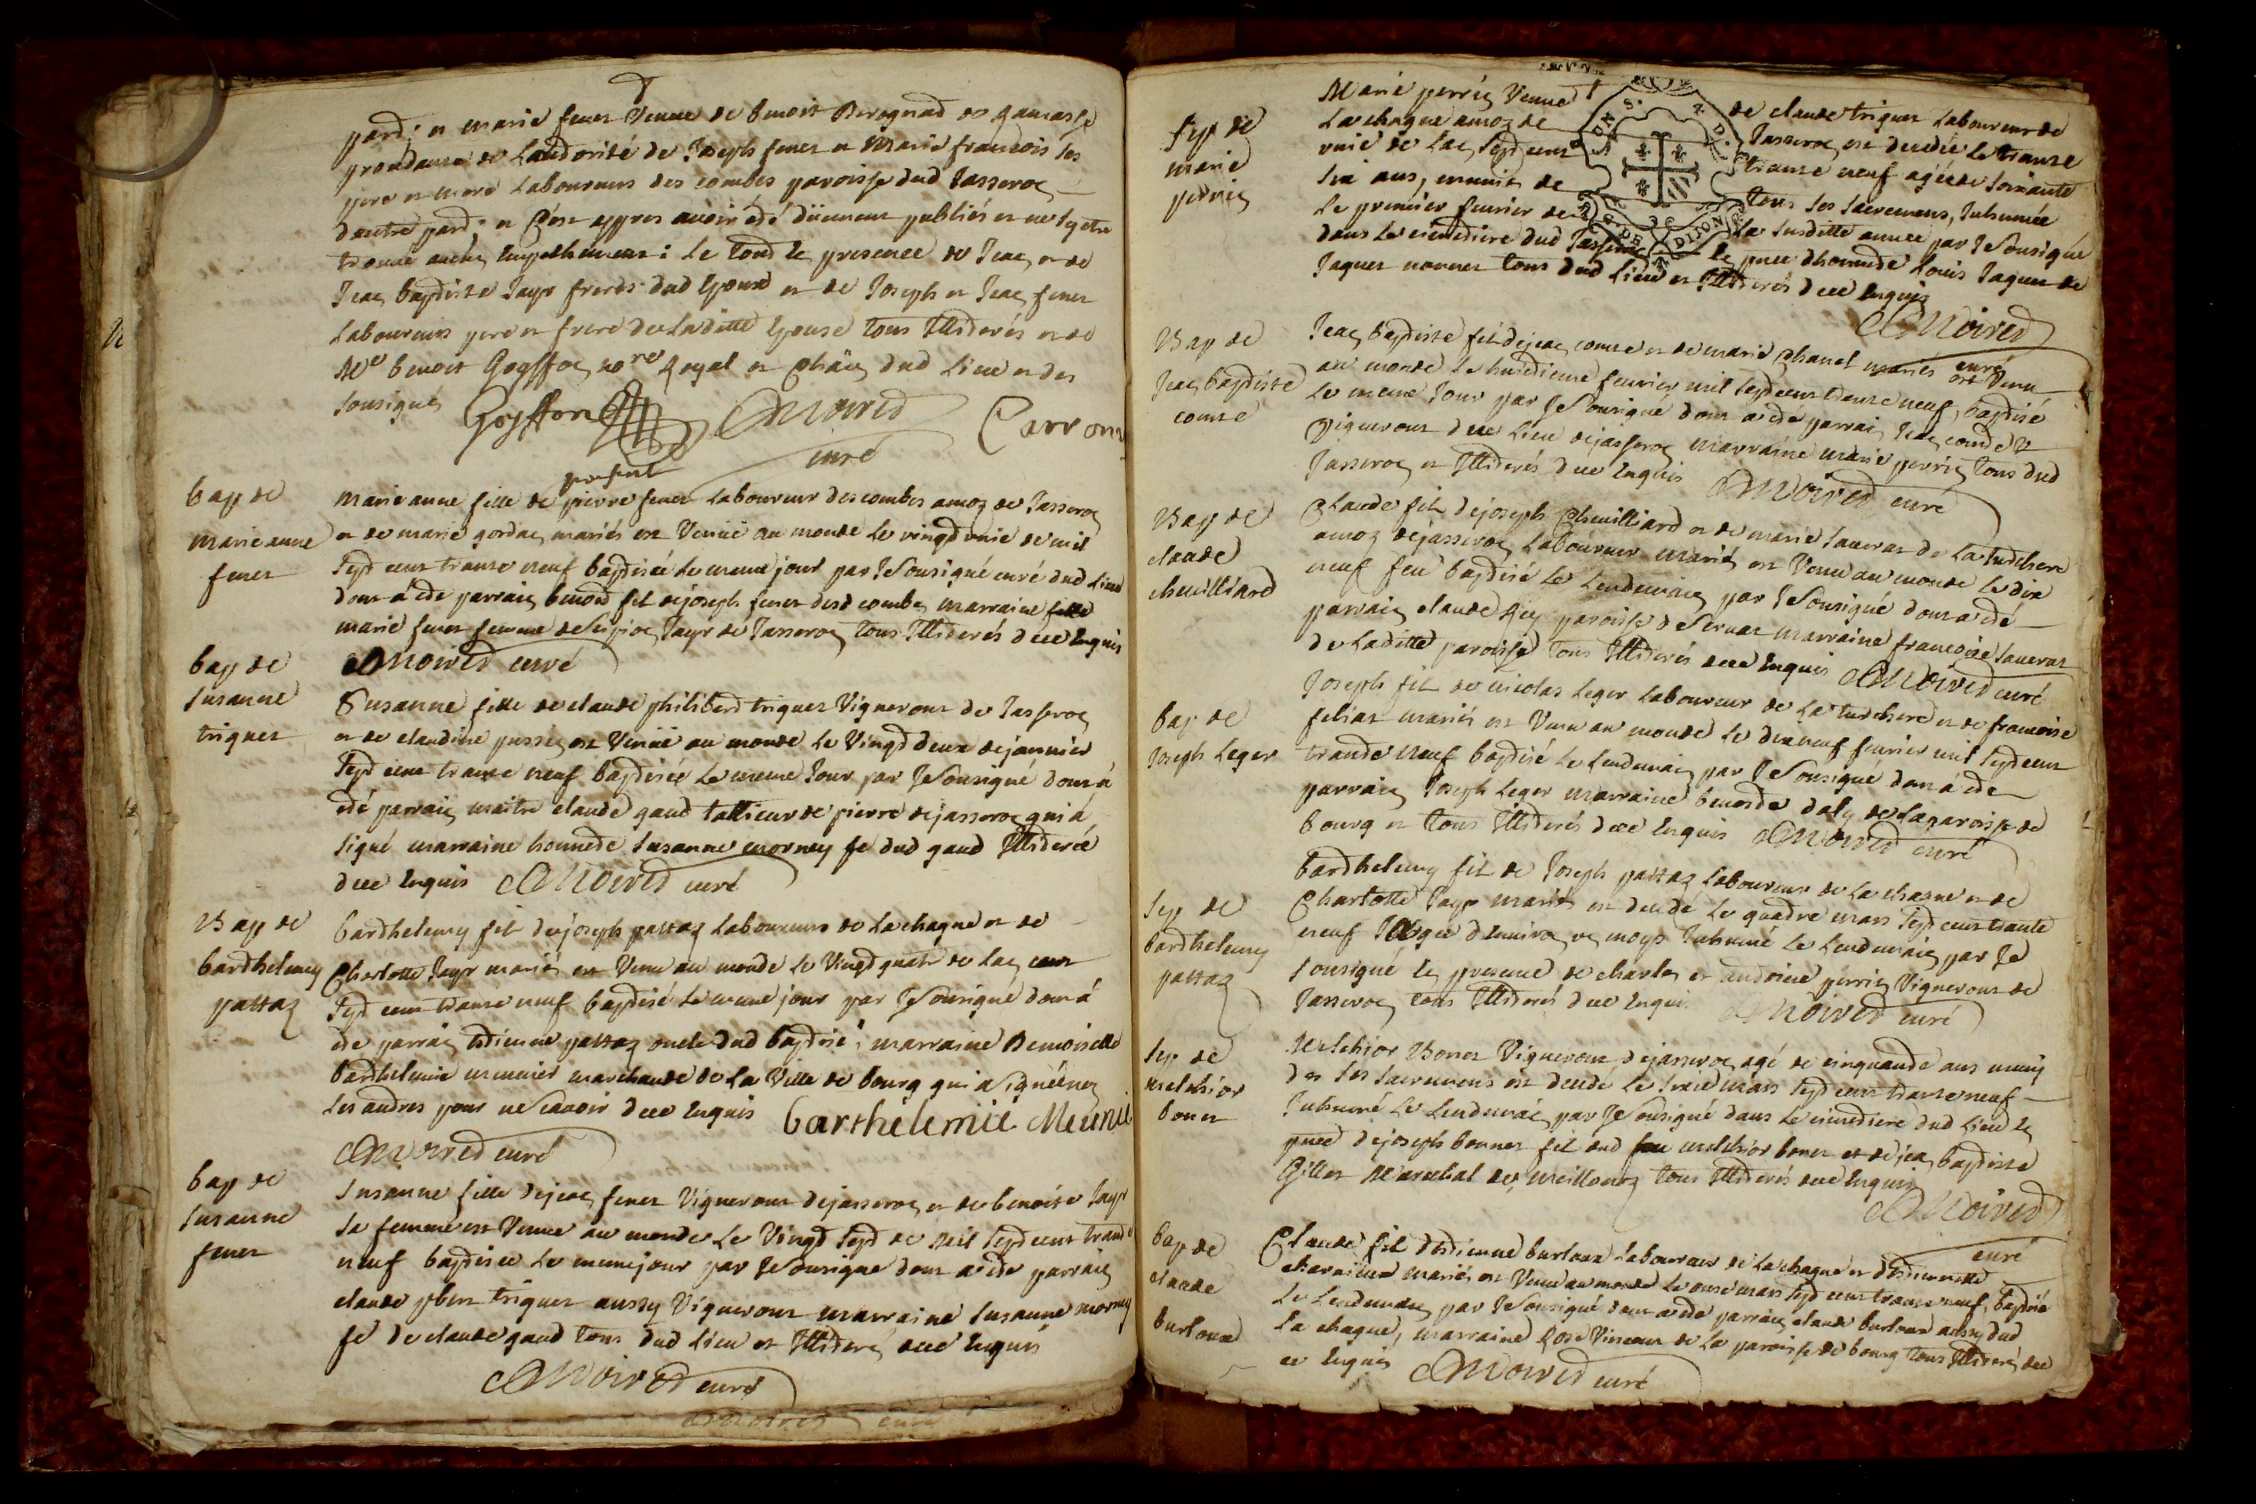 pard; et marie feuer Veuve de benoit
procedure de Laudorité de Joseph feuer et Marie francois ses
pere et mere Laboureurs des combes paroisse dud Jasseron
dautre pard; et C'est appres avoir édé düement publiés et ne s'y etre
trouvé aucun Empechement: Le toud En presence de Jean et de
Jean baptiste Jayr freres dud Epoux et de Joseph et Jean feuer
Laboureurs pere et frere de Laditte Epouse tous Illiderés et de
Me benoit Goyffon nore Royal et Châtn dud Lieu et des
sousignés Goyffon CMoired Carron
curé
bap de
marie anne
feuer
present
marie anne fille de pierre feuer Laboureur des combes amoz de Jasseron
et de marie gordan mariés est Venüe au monde Le vingd unie de mil
sepd cent trante neuf baptisée Le meme jour par Je sousigné curé dud Lieu
dont a édé parrain benoid fil de joseph feuer desd combes marraine
marie feuer femme de Jayr de Jasseron tous Illiderés de ce Enquis
CMoired curé
bap de
susanne
triquet
Susanne fille de claude philiberd triquet Vigneront de Jasseron
et de claudine est Venüe au monde Le Vingd deux de janvier
sepd cent trante neuf baptisée Le meme Jour par Je sousigné dont á
édé parrain maitre claude gaud tallieur de pierre de jasseron qui á
signé marraine honnede Susanne morney fe dud gaud Illiderée
de ce Enquis CMoired curé
Bap de
bardhelemy
pattaz
bardhelemy fil de joseph pattaz Laboureur de La chagne et de
Charlotte Jayr mariés est Venu au monde Le Vingd quatr de Lan
sepd cent trante neuf baptisé Le meme jour par Je sousigné dont á
éde parrain édienne pattaz oncle dud baptisé; marraine Demoiselle
bardhelemie meunier marchande de La Ville de bourg qui a signée non
Les audres pour ne scavoir de ce Enquis barthelemie Meunie
CMoired curé
bap de
susanne
feuer
Susanne fille de jean feuer Vigneront de jasseron et de benoite Jayr
sa femme est Venue au monde Le Vingd sepd de mil sepd cent trande
neuf baptisée Le meme jour par Je sousigné dont a édé parrain
claude pber triquet aussy Vigneront marraine Susanne morney
fe de claude gaud tous dud Lieu et Illiderés de ce Enquis
CMoired curé
sep de
marie
perrin
Marie perrin Veuve de claude triquet Laboureur de
La chagne amoz de Jasseron est decedée Le trante
unie de Lan sepd cent trante neuf agée de soixante
six ans, munie de tous ses sacremens, Inhumée
Le premier feurier de La susditte année par Je sousigné
dans Le cimediere dud Jasseron En pnce dhonnede Louis Jaquet de
Jaquet tous dud Lieu et Illiderés de ce Enquis
CMoired
curé
Bap de
Jean baptiste
comte
Jean baptiste fil de jean comte et de marie Chanel mariés est Venu
au monde Le huidieme feurier mil sepd cent trante neuf, baptisé
Le meme Jour par Je sousigné dont a édé parrain Jean comde
Vigneront du Lieu de jasseron marraine marie perrin tous dud
Jasseron et Illiderés de ce Enquis CMoired curé
Bap de
claude
chevilliard
Claude fil de joseph Chevilliard et de marie Saverat de La tudchere
amoz de jasseron Laboureur mariés est Venu au monde Le dix
neuf feu baptisé Le Lendemain par Je sousigné dont a édé
parrain claude paroisse marraine francoise Saverat
de Laditte paroisse tous Illiderés de ce Enquis CMoired curé
bap de
Joseph Leger
Joseph fil de nicolas Leger Laboureur de La tudchere et de francoise
feliat mariés est Venu au monde Le dix neuf feurier mil sepd cent
trande neuf baptisé Le Lendemain par Je sousigné dont á éde
parrain Joseph Leger marraine benoide daly de La paroisse de
bourg et tous Illiderés de ce Enquis CMoired curé
sep de
bardhelemy
pattaz
bardhelemy fil de Joseph pattaz Laboureur de La chagne et de
Charlotte Jayr mariés est decedé Le quadre mars sepd cent trante
neuf agée d'environ moys Inhumé Le Lendemain par Je
sousigné En presence de charles et andoine perrin Vigneront de
Jasseron tous Illiderés de ce Enquis CMoired curé
sep de
melchior
bonet
Melchior Bonet Vigneront de jasseron agé de cinquande ans muny
de ses sacremens est decedé Le mars sepd cent trante neuf
Inhumé Le Lendemain par Je sousigné dans Le cimediere dud Lieu En
pnce de joseph bonnet fil dud feu melchior bonet et de jean baptiste
Gillet Marechal de meillonaz tous Illiderés de ce Enquis
CMoired
curé
bap de
claude
burtoux
Claude fil d'édienne burtoux Laboureur de La chagne et
mariés est Venu au monde Le onze mars sepd cent trante neuf, baptisé
Le Lendemain par Je sousigné dont a éde parrain claude burtoux aussy dud
La chagne, marraine Rose Vincent de La paroisse de bourg tous Illiderés de
ce Enquis CMoired curé